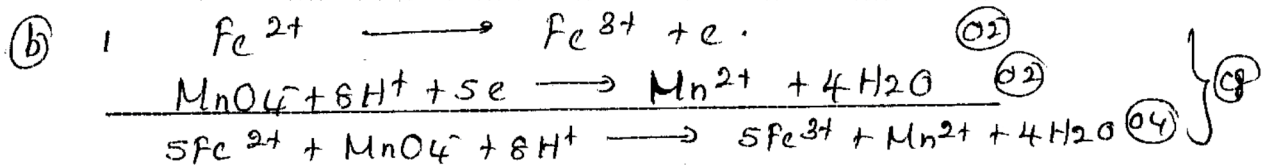 (b) 1 Fe 2+ ⟶ Fe 3+ + e . (02)
MnO4- + 8H+ + 5e ⟶ Mn2+ + 4H2O (02)
5Fe 2+ + MnO4- + 8H+ ⟶ 5Fe3+ + Mn2+ + 4H2O (04) } (08)